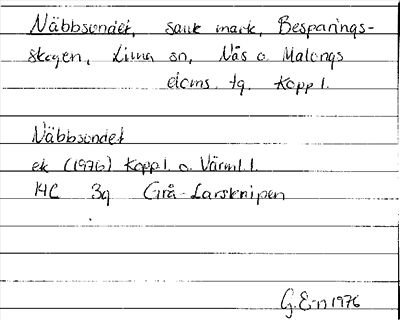 Näbbsundet, sank mark, Besparings-
skogen, Lima sn, Nås o. Malungs
doms. tg. Koppl.
Näbbsundet
ek (1976) Koppl. o. Värml. l.
14C 3g Grå-Larsknipen
G.E-n 1976